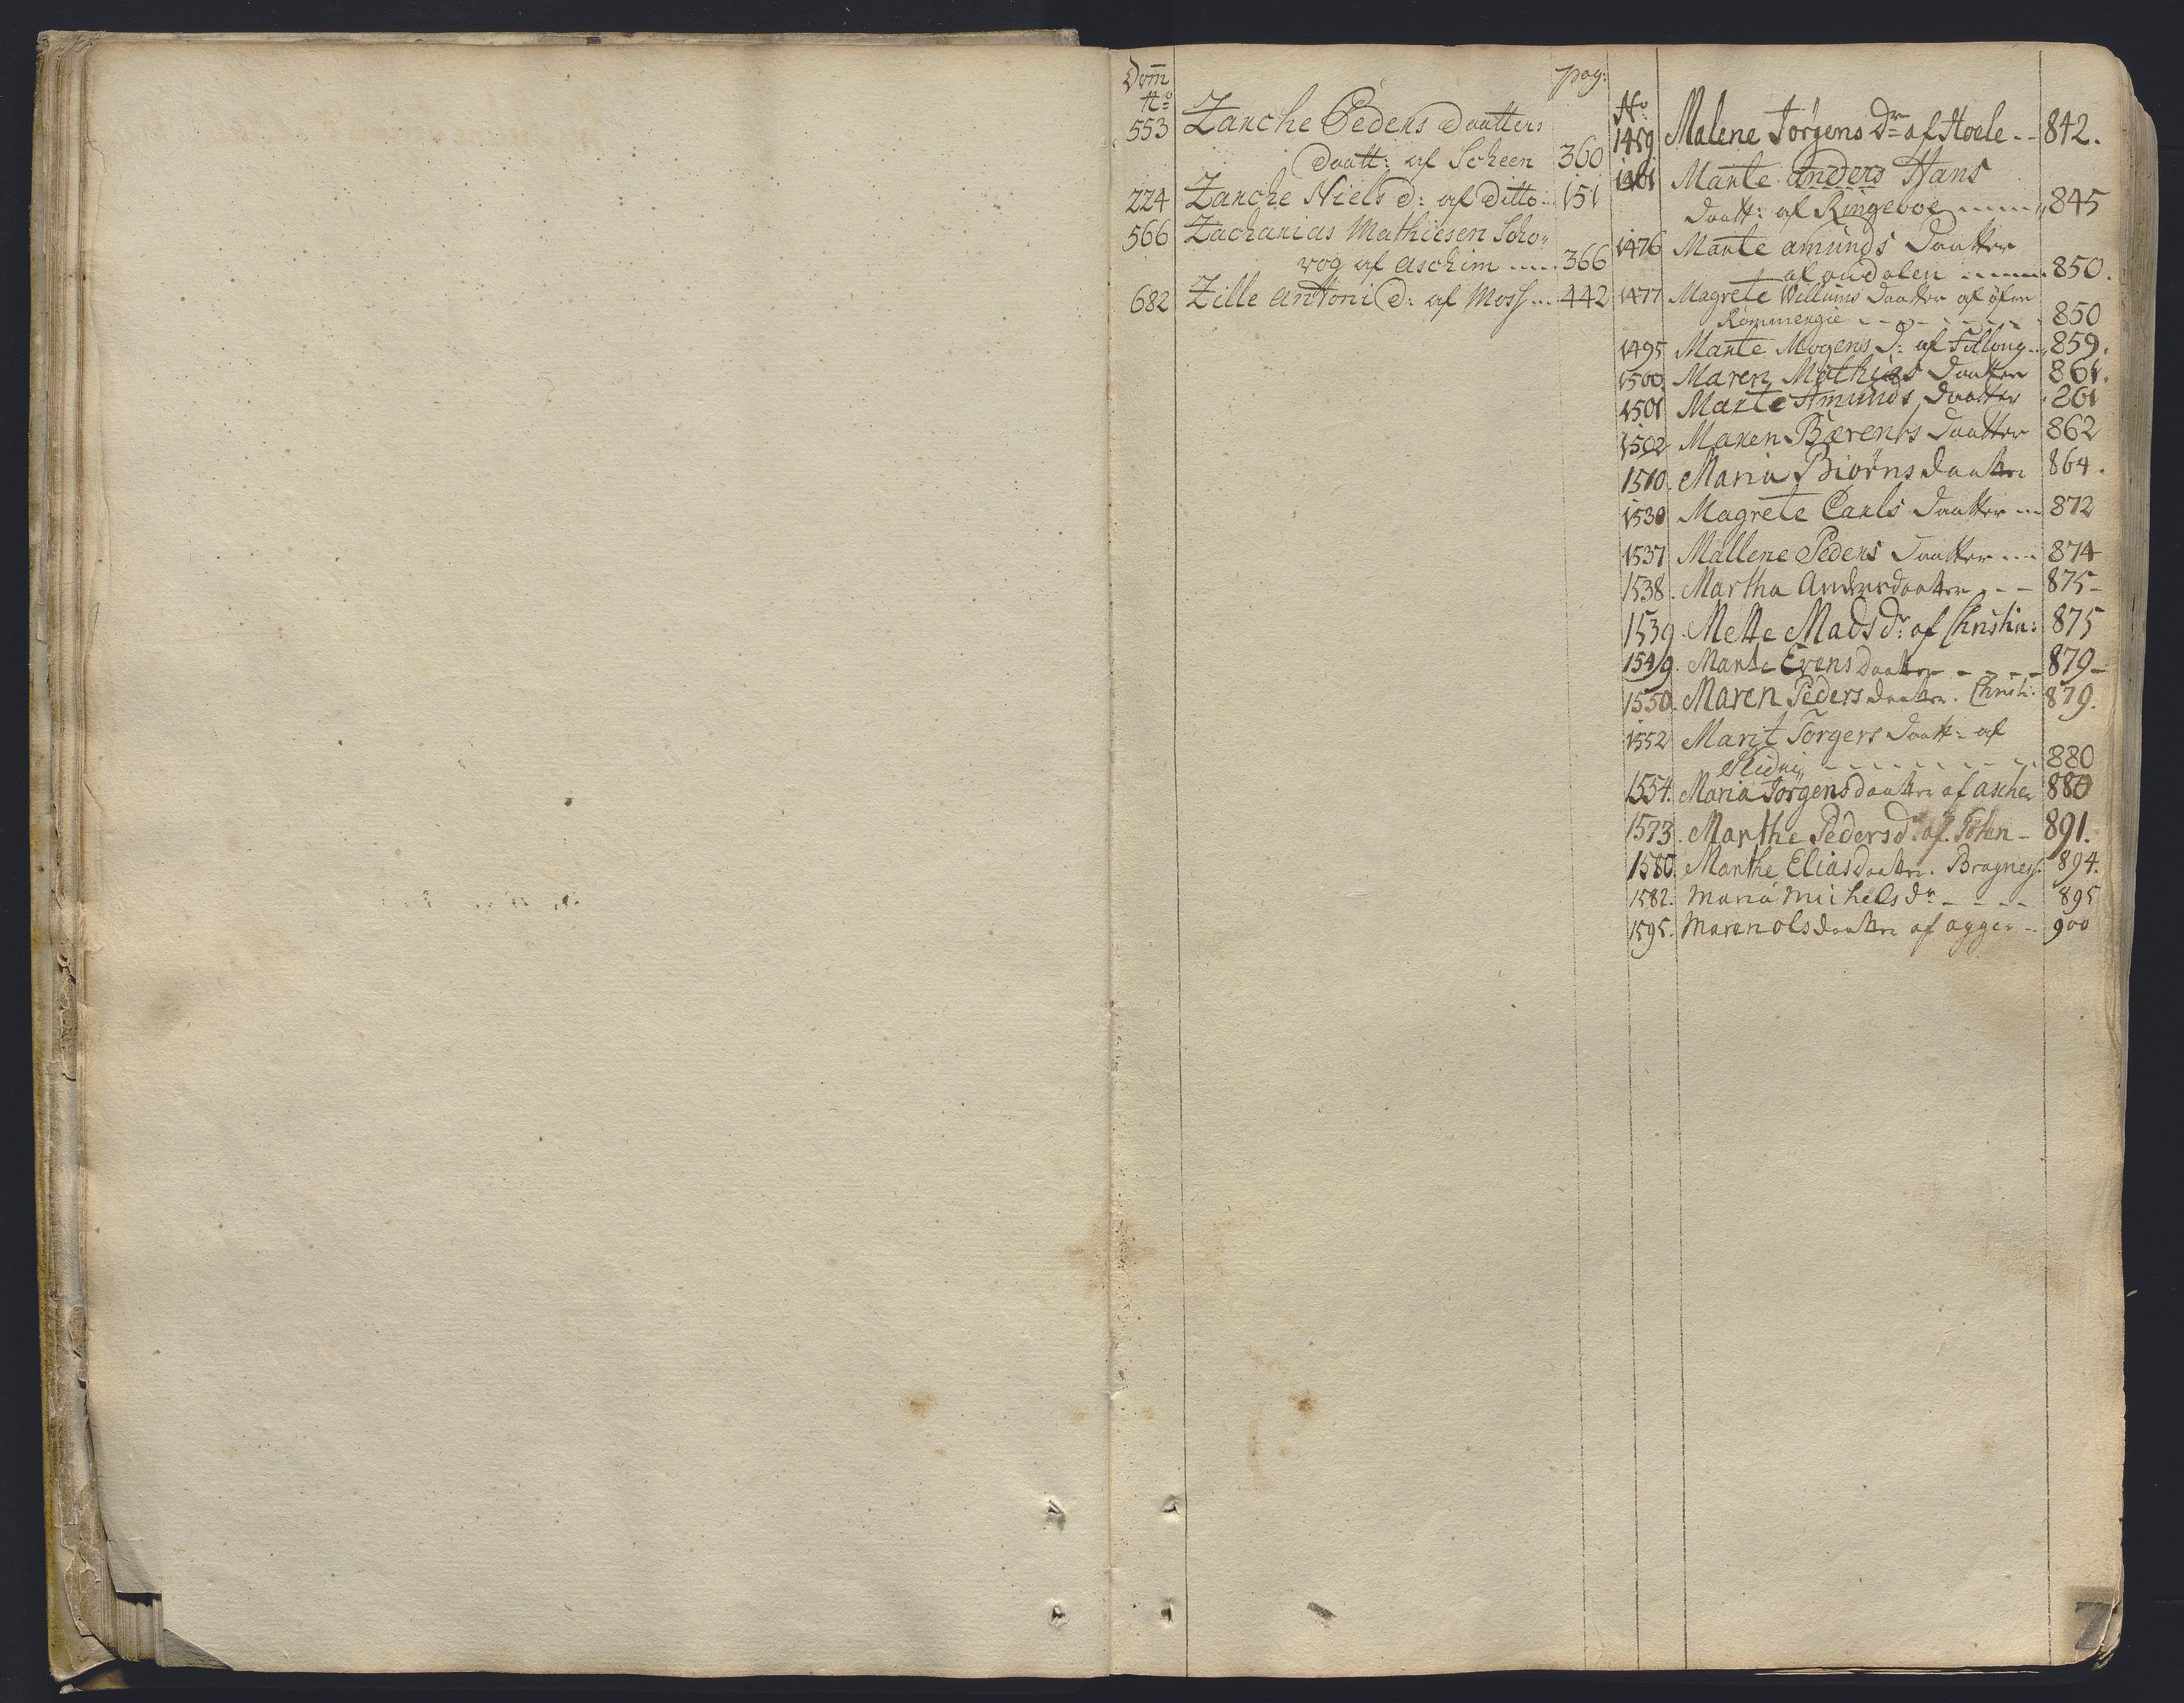 Dom̅ pag:
No
553 Zanche Peders Daatters
Daatt: af Scheen 360
224 Zanche Niels d: af ditto 151
566 Zacharias Mathiesen Scho„
vog af Aschim 366
682 Zille Antoni d: af Moss 442
No
1459 Malene Jørgens Dr af Hoele 842.
1461 Marte Anders Hans
Daatt: af Ringeboe 845
1476 Marte Amunds Daatter
af oudalen 850.
1477 Magrete Willums Daatter af öfre
Rommerigie 850
1495 Marte Mogens D: af 859.
1500 Maren Mathias Daatter 861.
1501 Marte Amunds Daatter 861
1502 Maren Bærents Daatter 862
1510. Maria Biørns daatter 864.
1530 Magrete Carls Daatter 872
1537 Mallene Peders Daatter 874
1538. Martha Andersdaatter 875
1539. Mette Mads dr: af Christia: 875
1549. Marte Evens daatter 879
1550. Maren Peders daatter. Christi: 879.
1552 Marit Torgers Daatt: af
880
1554. Maria Jorgens daatter af ascher 880
1573. Marthe Peders d: af Toten 891.
1580. Marthe Elias daatter. Bragness. 894.
1582. Maria Michels dr 895
1595. Maren ols daatter af agger 900
7